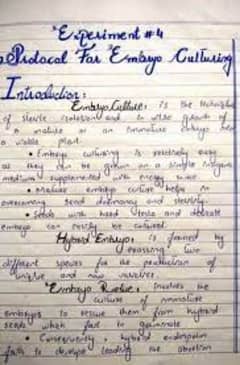 Experiment #4
Protocol For Embryo Culturing
Introduction:
Embryo Culture: is the technique
of sterile isolation and in vitro growth of
a mature or an immature embryo from
a viable plant.
• Embryo culturing is relatively easy
as they can be grown on a simple inorganic
medium supplemented with energy source
• Mature embryo culture helps in
overcoming seed dormancy and sterility.
• Seeds with hard testa and delicate
embryo can easily be cultured.
Hybrid Embryo: is formed by
crossing two
different species for the production of
unique and new varieties.
Embryo Rescue: involves the
culture of immature
embryos to rescue them from hybrid
seeds which fail to germinate
• Consequently, hybrid endosperm
fails to develop leading the abortion